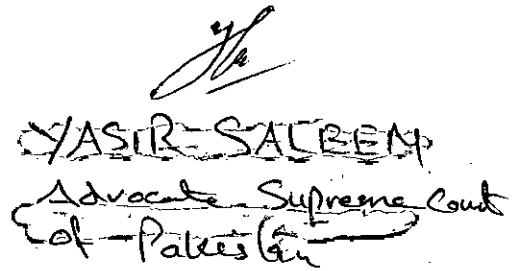 YASIR SALEEM
Advocate Supreme Court
of Pakistan